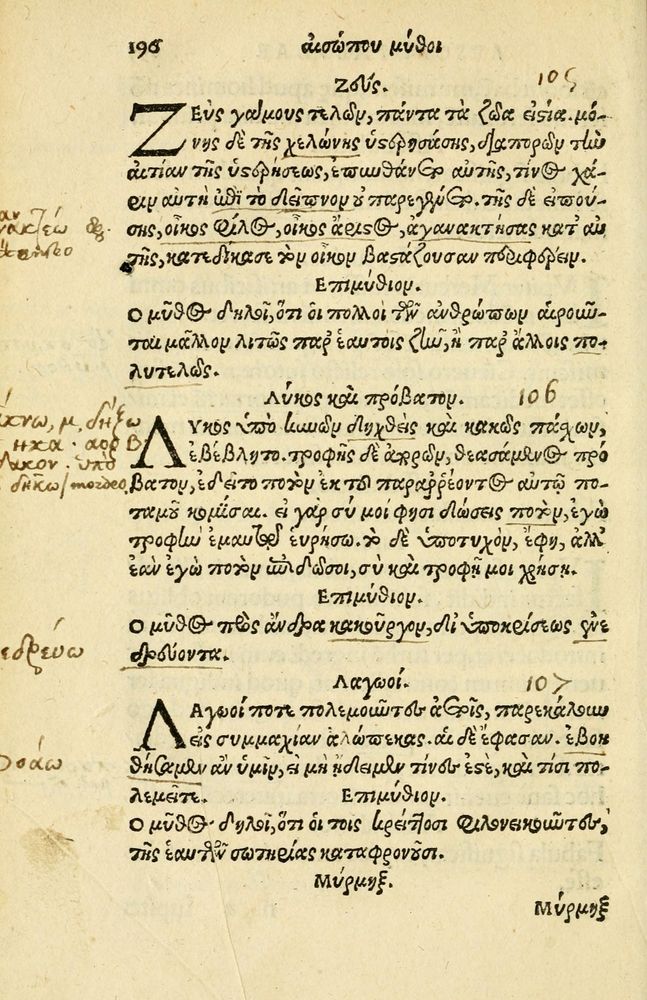 196 αἰσώπου μῦθοι
Ζεύς. 105
ΖΕὺς γάμους τελῶν, πάντα τὰ ζῶα εἱστία. μό-
νης δὲ τῆς χελώνης ὑστερησάσης, διαπορῶν τὴν
αἰτίαν τῆς ὑστερήσεως, ἐπυνθάνετο αὐτῆς, τίνος χά-
ριν αὐτὴ ἐπὶ τὸ δεῖπνον οὐ παρεγένετο. τῆς δὲ εἰπού-
σης, οἶκος φίλος, οἶκος ἄριστος, ἀγανακτήσας κατ᾽ αὐ
τῆς, κατεδίκασε τὸν οἶκον βαστάζουσαν περιφέρειν.
Ἐπιμύθιον.
Ὁ μῦθος δηλοῖ, ὅτι οἱ πολλοὶ τῶν ἀνθρώπων αἱροῦν-
ται μᾶλλον λιτῶς παρ᾽ ἑαυτοῖς ζῆν, ἢ παρ᾽ ἄλλοις πο-
λυτελῶς.
Λύκος καὶ πρόβατον. 106
ΛΥκος ὑπὸ κυνῶν δηχθεὶς καὶ κακῶς πάσχων,
ἐβέβλητο. τροφῆς δὲ ἀπορῶν, θεασάμενος πρό
βατον, ἐδεῖτο ποτὸν ἐκ τοῦ παραῤῥέοντος αὐτῷ πο-
ταμοῦ κομίσαι. εἰ γὰρ σύ μοι φησὶ δώσεις ποτὸν, ἐγὼ
τροφὴν ἐμαυτῷ εὑρήσω. τὸ δὲ ὑποτυχὸν, ἔφη, ἀλλ᾽
ἐὰν ἐγὼ ποτὸν ἐπιδώσοι, σὺ καὶ τροφῇ μοι χρήσῃ.
Ἐπιμύθιον.
Ὁ μῦθος πρὸς ἄνδρα κακοῦργον, δι᾽ ὑποκρίσεως ἐνε
δρεύοντα.
Λαγωοί. 107
ΛΑγωοί ποτε πολεμοῦντες ἀετοῖς, παρεκάλουν
εἰς συμμαχίαν ἀλώπεκας. αἱ δὲ ἔφασαν. ἐβοη
θήσαμεν ἂν ὑμῖν, εἰ μὴ ᾔδειμεν τίνες ἐστὲ, καὶ τίσι πο-
λεμεῖτε. Ἐπιμύθιον.
Ὁ μῦθος δηλοῖ, ὅτι οἱ τοῖς κρείττοσι φιλονεικοῦντες,
τῆς ἑαυτῶν σωτηρίας καταφρονοῦσι.
Μύρμηξ.
Μύρμηξ
δήξω
mordeo
εδρεύω